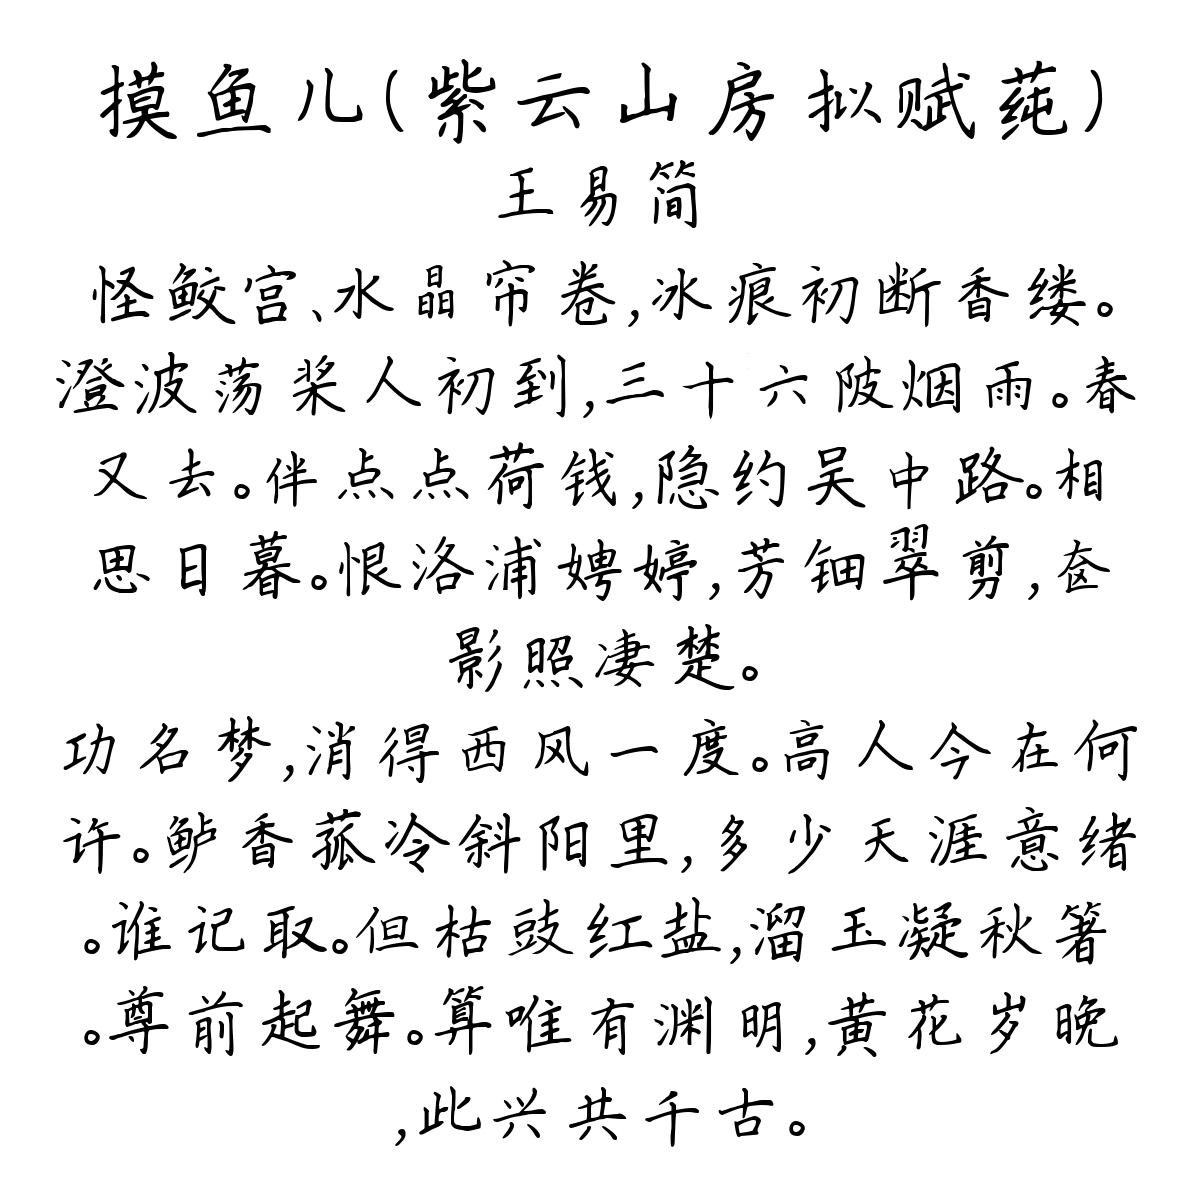 摸鱼儿(紫云山房拟赋莼)
王易简
怪鲛宫、水晶帘卷,冰痕初断香缕。
澄波荡桨人初到,三十六陂烟雨。春
又去。伴点点荷钱,隐约吴中路。相
思日暮。恨洛浦娉婷,芳钿翠剪,奁
影照凄楚。
功名梦,消得西风一度。高人今在何
许。鲈香菰冷斜阳里,多少天涯意绪
。谁记取。但枯豉红盐,溜玉凝秋箸
。尊前起舞。算唯有渊明,黄花岁晚
,此兴共千古。